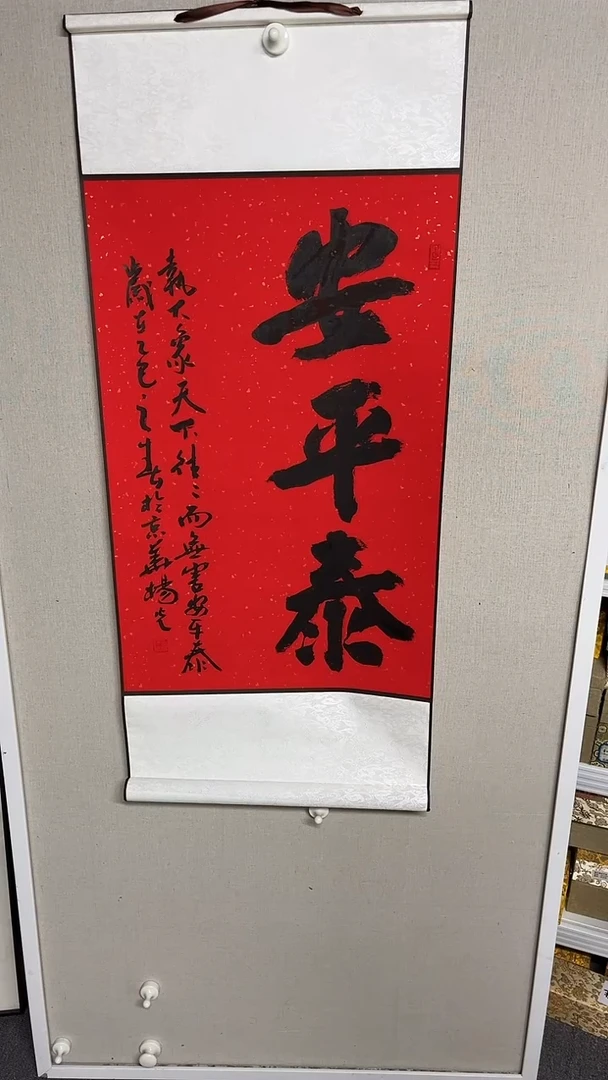 安平泰
執大象天下往往而無害安平泰
歲在乙巳之春書於京華楊光